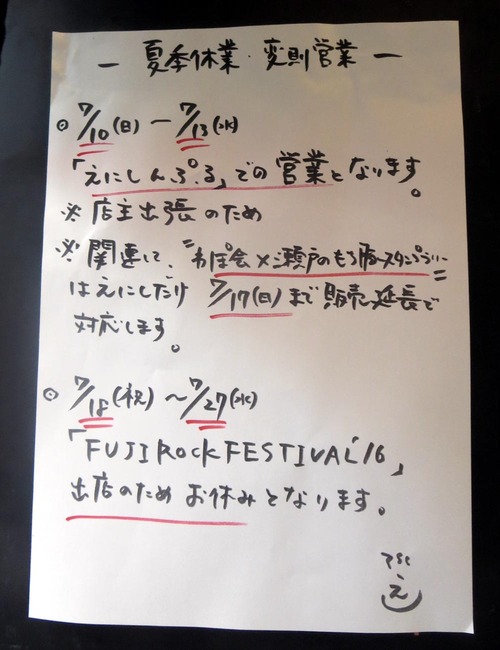 ー 夏季休業・変則営業 ー
◎ 7/10(日) ー 7/13(水)
「えにしんぷる」での営業となります。
※ 店主出張のため
※ 関連して、"わぽ会×瀬戸のもろ豚スタンプラリー"
はえにしだけ 7/17(日)まで販売延長で
対応します。
◎ 7/18(祝) ～ 7/27(水)
「FUJI ROCK FESTIVAL'16」
出店のためお休みとなります。
え